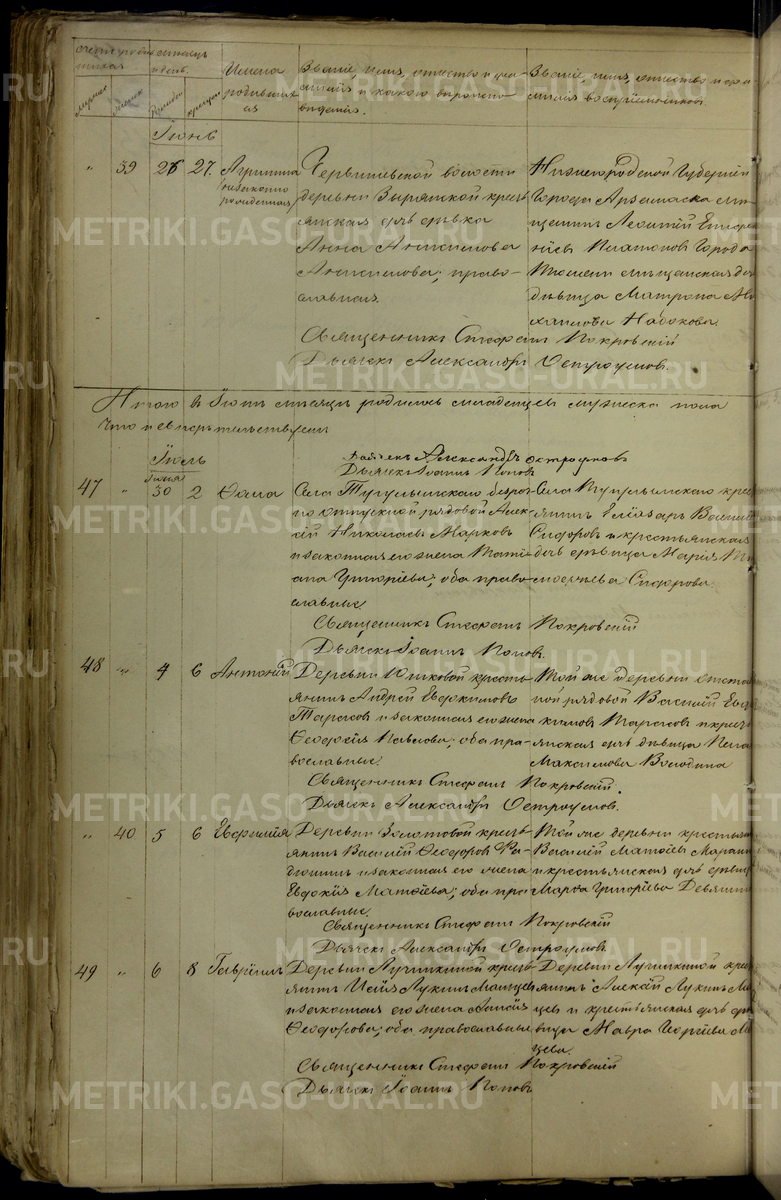 Счетъ родив-
шихся
Мѣсяцъ
и день.
Имена
родивших-
ся
Званіе, имя, отчество и фа-
милія и какого вѣроиспо-
вѣданія.
Званіе, имя, отчество и фа-
милія воспріемниковъ.
Іюнь
" 39 26 27. Агриппина
незаконно
рожденная
Червишевской волости
деревни Зырянской кресть
янская дѣвъ дѣвка
Анна Антипова
Антипова; право-
славная.
Нижегородской Губерніи
города Арзамаса мѣ-
щанинъ Леонтій
Платоновъ города
Тюмени мѣщанская до
дѣвица Матрона
Набокова.
Священникъ Стефанъ Покровскій
Дьячекъ Александръ Остроумов.
Итого въ Іюнѣ мѣсяцѣ родилось младенцевъ мужеска пола
Что и свидѣтельствуемъ
Александръ Остроумовъ
Дьячекъ Іоаннъ Поповъ
Іюль
Іюня
47 " 30 2 Ѳома
Села Тугулымскаго безроч-
но отпускной рядовой Алек-
сій Николаевъ Марковъ
и законная его жена Тати-
ана Григоріева; оба право-
славные.
Села Тугулымскаго крес
янинъ Елеазаръ Васил
Сидоровъ и крестьянская
дѣвица Марія Ти
моѳеева Сидорова.
Священникъ Стефанъ Покровскій
Дьячекъ Іоаннъ Поповъ.
48 " 4 6 Антоній
Деревни Юшковой кресть-
янинъ Андрей Евдокимовъ
Тарасовъ и законная его жена
Ѳеодосія Павлова; оба пра-
вославные.
Той же деревни отста
ной рядовой Василій Евд
кимовъ Тарасовъ и крест
янская дѣвица Пела
Максимова Володина
Священникъ Стефанъ Покровскій
Дьячекъ Александръ Остроумов.
" 40 5 6 Евфимія
Деревни Золотовой кресть
янинъ Василій Ѳеодоровъ
и законная его жена
Евдокія Матѳіева; оба пра
вославные.
Той же деревни крестьян
Василій Матѳіевъ
и крестьянская дѣвиц
Марѳа Григоріева Девятки
Священникъ Стефанъ Покровскій
Дьячекъ Александръ Остроумовъ
49 " 6 8 Гавріилъ
Деревни Лучинкиной кресть
янинъ Исаія Лукинъ Мальцев
и законная его жена
Ѳеодорова; оба православные
Деревни Лучинкиной крес
янинъ Алексій Лукинъ Ма
цев и крестьянская дѣ
вица Мавра Георгіева М
цева.
Священникъ Стефанъ Покровскій
Дьячекъ Іоаннъ Поповъ
METRIKI.GASO-URAL.RU